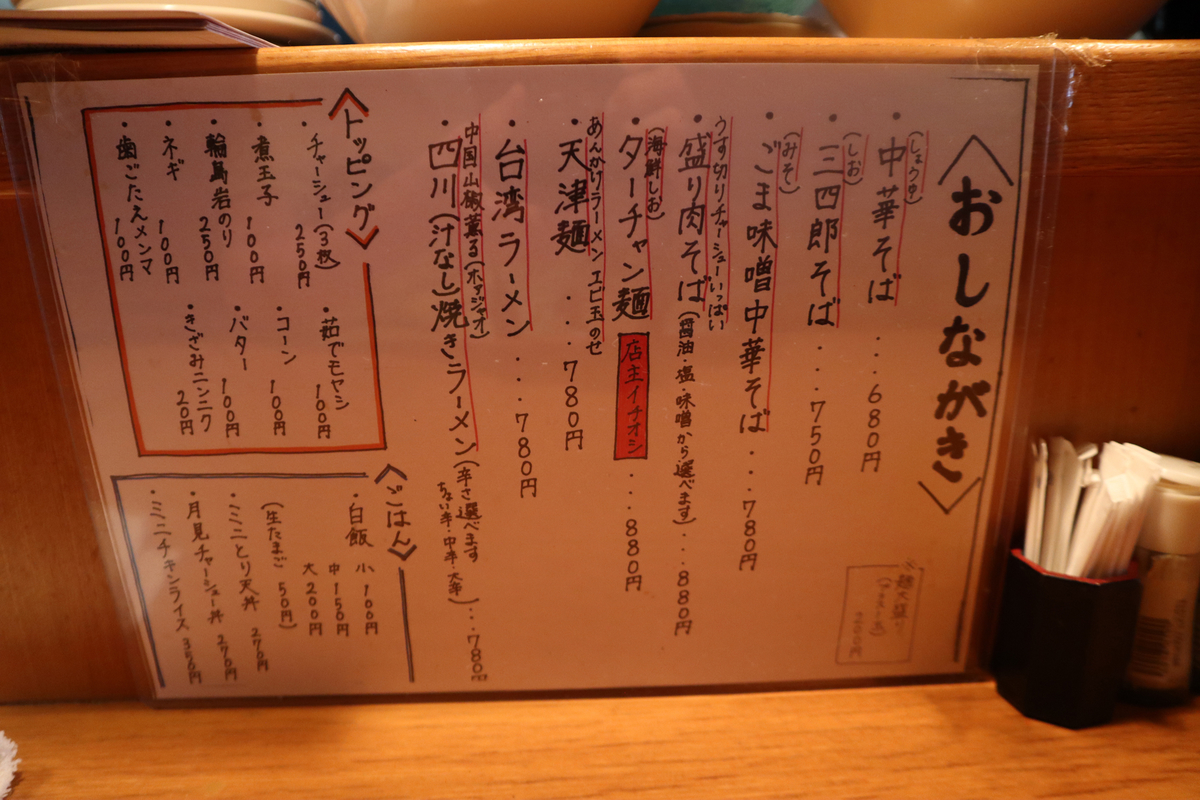 おしながき
(しょうゆ)
・中華そば...680円
(しお)
・三四郎そば....750円
(みそ)
・ごま味噌中華そば...780円
うす切りチャーシューいっぱい
・盛り肉そば(醤油・塩・味噌から選べます)...880円
(海鮮しお)
・ターチャン麺 店主イチオシ...880円
あんかけラーメン エビ玉のせ
・天津麺....780円
・台湾ラーメン...780円
中国山椒薫る(ホアジャオ)
・四川(汁なし)焼きラーメン(辛さ選べます
ちょい辛・中辛・大辛)...780円
※麺大盛り
200円
トッピング
・チャーシュー(3枚)250円
・煮玉子 100円
・輪島岩のり 250円
・ネギ 100円
・歯ごたえメンマ 100円
・茹でモヤシ 100円
・コーン 100円
・バター 100円
・きざみニンニク 20円
ごはん
・白飯 小 100円
中 150円
大 200円
(生たまご 50円)
・ミニとり天丼 270円
・月見チャーシュー丼 270円
・ミニチキンライス 350円